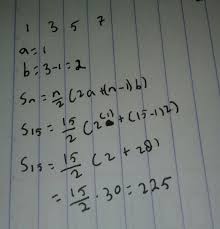 1 3 5 7
a = 1
b = 3-1 = 2
Sn = n/2 (2a + (n-1) b)
S15 = 15/2 (2(1) + (15-1)2)
S15 = 15/2 (2 + 28)
= 15/2 . 30 = 225